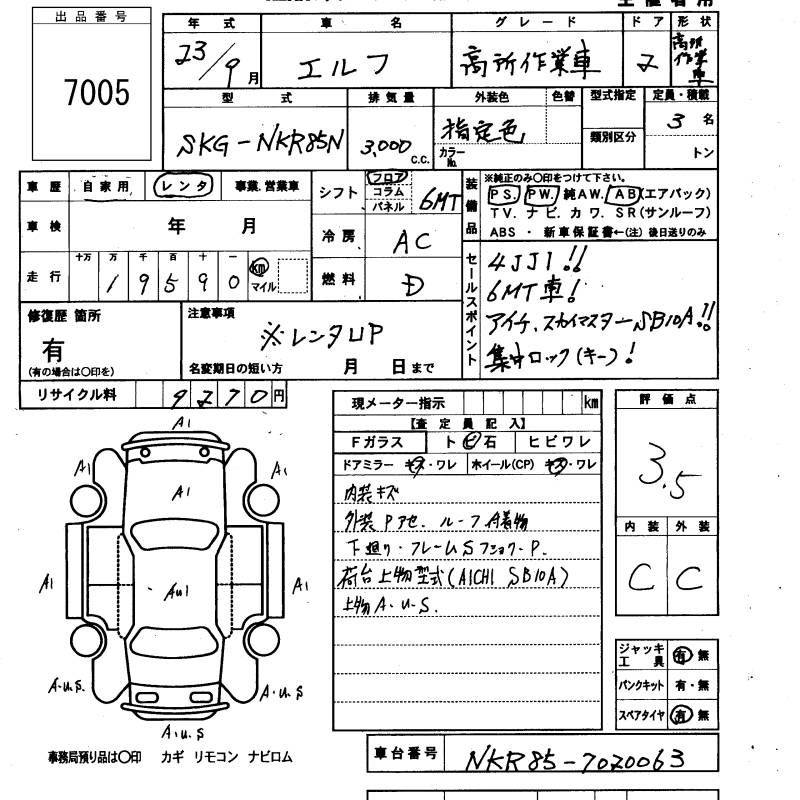 出品番号
7005
年式
23/9月
車名
エルフ
グレード
高所作業車
ドア
2
形状
高所作業車
型式
SKG-NKR85N
排気量
3,000 C.C.
外装色
指定色
カラーNo.
色替
型式指定
類別区分
定員・積載
3名
トン
車歴
自家用
レンタ
事業.営業車
車検
年 月
走行
十万 万 千 百 十 一
19590
km
マイル
シフト
フロア
コラム
パネル
6MT
冷房
AC
燃料
D
装備品
※純正のみ〇印をつけて下さい。
PS. PW. 純AW. AB(エアバック)
TV. ナビ. カワ. SR(サンルーフ)
ABS ・ 新車保証書←(注) 後日送りのみ
セールスポイント
4JJ1!!
6MT車!
アイチ、スカイマスターSB10A!!
集中ロック(キー)!
修復歴 箇所
有
(有の場合は〇印を)
注意事項
※レンタUP
名変期日の短い方 月 日まで
リサイクル料
9270円
現メーター指示 km
【査定員記入】
Fガラス
トビ石
ヒビワレ
ドアミラー キズ・ワレ
ホイール(CP) キズ・ワレ
内装キズ
外装Pアセ. ルーフ付着物
下廻り・フレームSフショク・P.
荷台上物型式(AICHI SB10A)
上物A・U・S.
評価点
3.5
内装
外装
C
C
A1
A1
A1
A1
A1
AU1
A1
A.U.S.
A.U.S
A.U.S
ジャッキ工具 有 無
パンクキット 有・無
スペアタイヤ 有 無
事務局預り品は〇印 カギ リモコン ナビロム
車台番号
NKR85-7020063